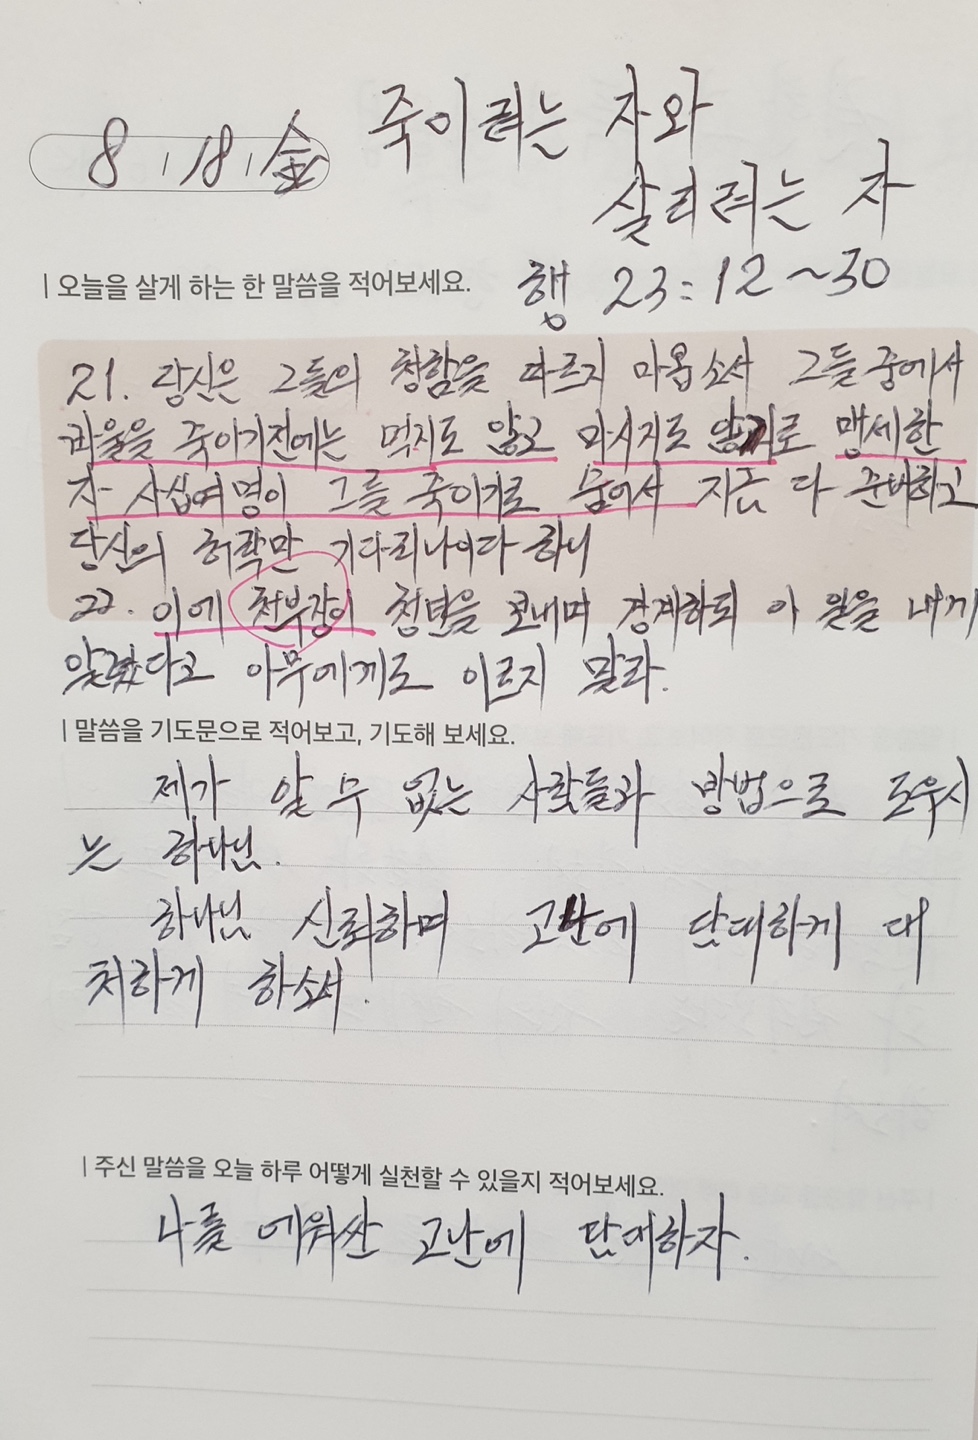 8 18 金 죽이려는 자와
살리려는 자
| 오늘을 살게 하는 한 말씀을 적어보세요. 행 23:12~30
21. 당신은 그들의 청함을 따르지 마옵소서 그들 중에서
바울을 죽이기전에는 먹지도 않고 마시지도 않기로 맹세한
자 사십여명이 그를 죽이기로 숨어서 지금 다 준비하고
당신의 허락만 기다리나이다 하니
22. 이에 천부장이 청년을 보내며 경계하되 이 일을 내게
알렸다고 아무에게도 이르지 말라.
| 말씀을 기도문으로 적어보고, 기도해 보세요.
제가 알 수 없는 사람들과 방법으로 도우시
는 하나님.
하나님 신뢰하며 고난에 담대하게 대
처하게 하소서.
| 주신 말씀을 오늘 하루 어떻게 실천할 수 있을지 적어보세요.
나를 에워싼 고난에 담대하자.